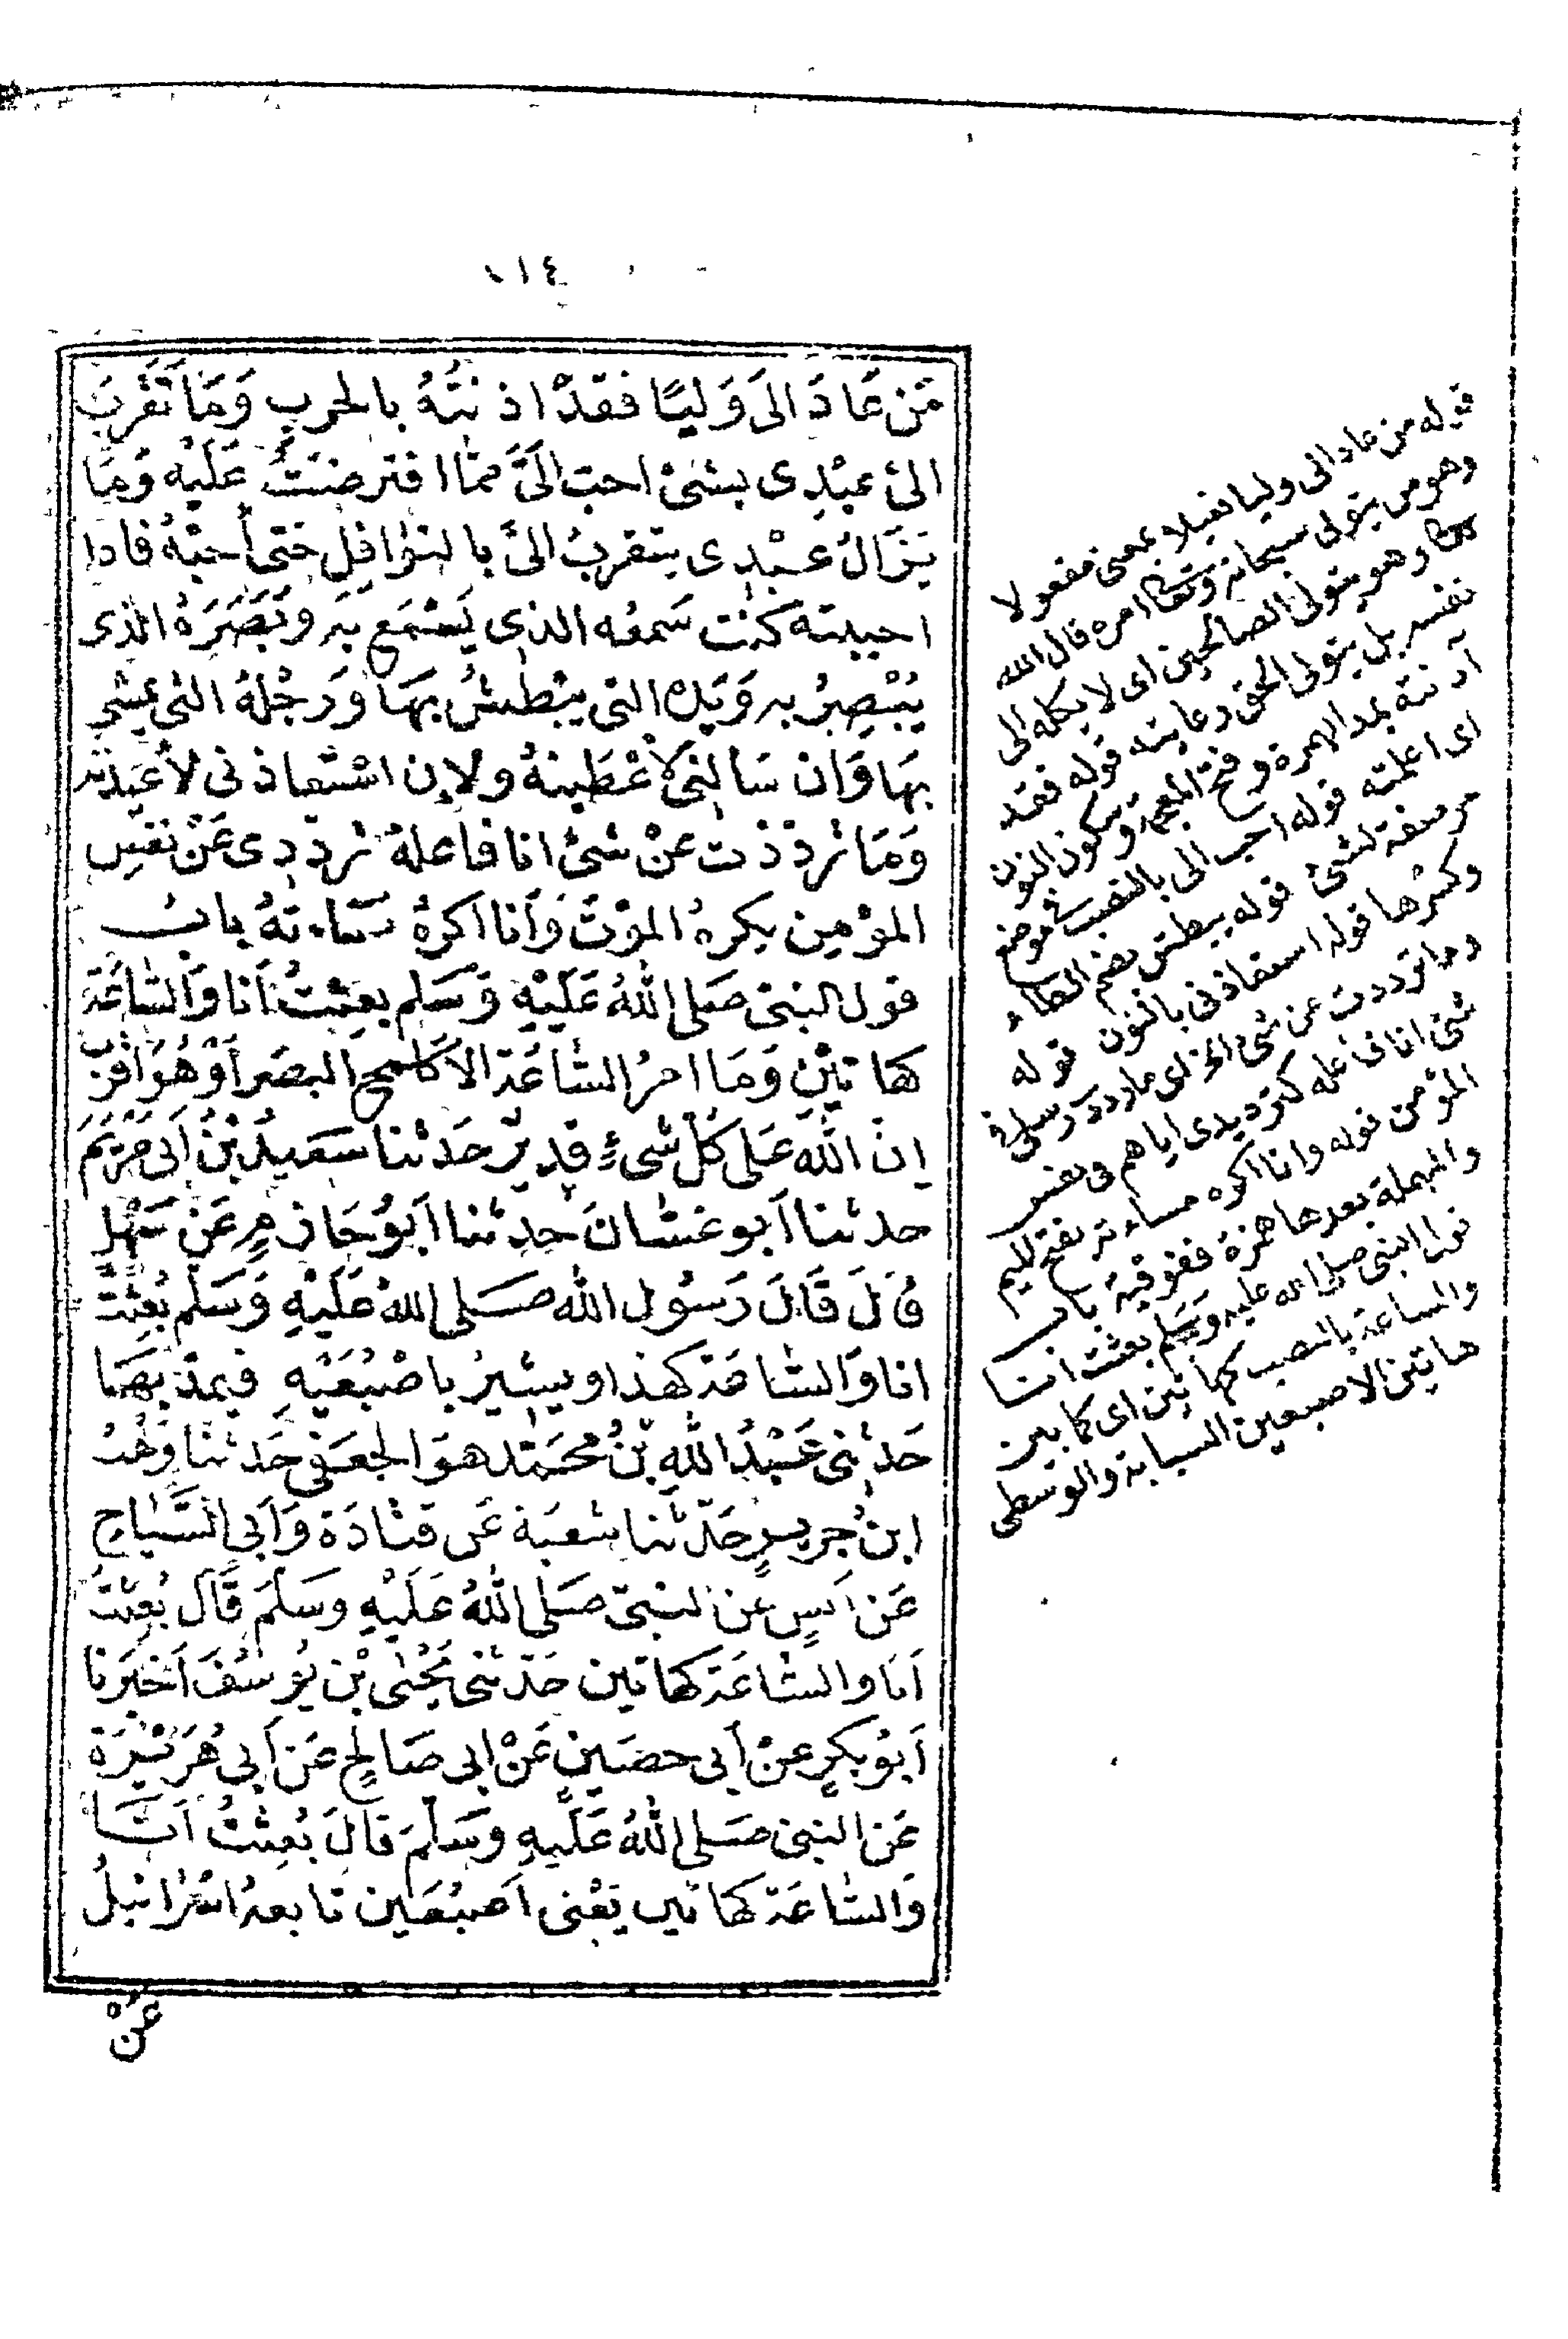 ١١٤
مَن عَادَ الىَ وَليًا فقدْ اذ نتُهُ بالحرب وَمَا تَقَرب
الىَّ عبْدِى بشىْ احب الَىَّ مما افترضتُ عَلَيْه وَمَا
يَزَالُ عبْدِى يتقربُ الىَّ بالنوَافِلِ حتى أحبَّهُ فاذا
احببته كنْت سَمعُه الذى يَسْمَع بِهِ وَبَصَرَهُ الذى
يُبْصِرُ به وَيَدهُ التى يبْطشُ بهَا وَرجْلهُ التى يمشى
بهَا وَان سَالنى لأعْطَينهُ ولإن اسْتعاذنى لأعيذنه
وَمَا تردّدْت عنْ شىْ انا فاعلهُ ترددِى عَنْ نفسِ
المؤمِن يكرهُ الموْتَ وَأنا اكرهُ مساءتهُ باب
قول النبىّ صَلى اللهُ عَلَيْهِ وَسَلم بعِثْتُ أنا وَالسَّاعَة
كهاتيْنِ وَمَا امرُ السَّاعَة الا كلمح البصَر أوْ هُوَ أقرَبُ
انّ الله عَلى كُلّ شىْءٍ قدِيرٌ حَدثنا سَعيدُ بْنُ أبى مَرْيَمَ
حدثنا أبو غسَّانَ حدثنا أبوُ حَازمٍ عَنْ سَهْلٍ
قالَ قَالَ رَسُول الله صَلى اللهُ عَلَيْهِ وَسَلم بُعثْتُ
انا وَالسَّاعَة كهذا ويشيرُ باصْبُعَيْهِ فيمدّ بهمَا
حَدثنى عَبْدُ اللهِ بْنُ محَمَّد هوَ الجعفى حَدثنا وَهْبُ
ابنُ جريرٍ حَدّثنا شعبَة عَن قتَادَة وَأبى التَّيَّاحِ
عَن أنَسٍ عن النبىّ صَلى اللهُ عَلَيْهِ وسَلمَ قَالَ بُعِثْتُ
أنَا والسَّاعَة كهاتين حَدّثنى يَحْيٰى بْن يُوسُفَ أخْبَرَنا
أبوُ بكرٍ عنْ أبى حصَينٍ عَنْ ابى صَالحٍ عَن أبى هُرَيْرَة
عَن النبى صَلى اللهُ عَلَيهِ وَسَلمَ قالَ بُعِثْتُ أنا
وَالسَّاعَة كهاتين يَعْنى أصْبُعَين تابعهُ اسْرَائيلُ
عَنْ
قوله من عاد الى وليا فعيلا بمعنى مفعولا
وهو من يتولى سبحانه وتعالى امره قال الله
تعالى وهو يتولى الصالحين اى لا يكله الى
نفسه بل يتولى الحق رعايته قوله فقد
آذنته بمد الهمزة وفتح المعجمة وسكون النون
اى اعلمته قوله احب الى بالنصب
صفة لشئ قوله يبطش بضم الطاء
وكسرها قوله استعاذنى بالنون قوله
وما ترددت عن شئ الخ اى ما رددت رسلى فى
شئ انا فاعله كترديدى اياهم فى نفس
المؤمن قوله وانا اكره مساءته بفتح الميم
والمهملة بعدها همزة ففوقية باب
قول النبى صلى الله عليه وسلم بعثت انا
والساعة بالنصب كهاتين اى كما بين
هاتين الاصبعين السبابة والوسطى